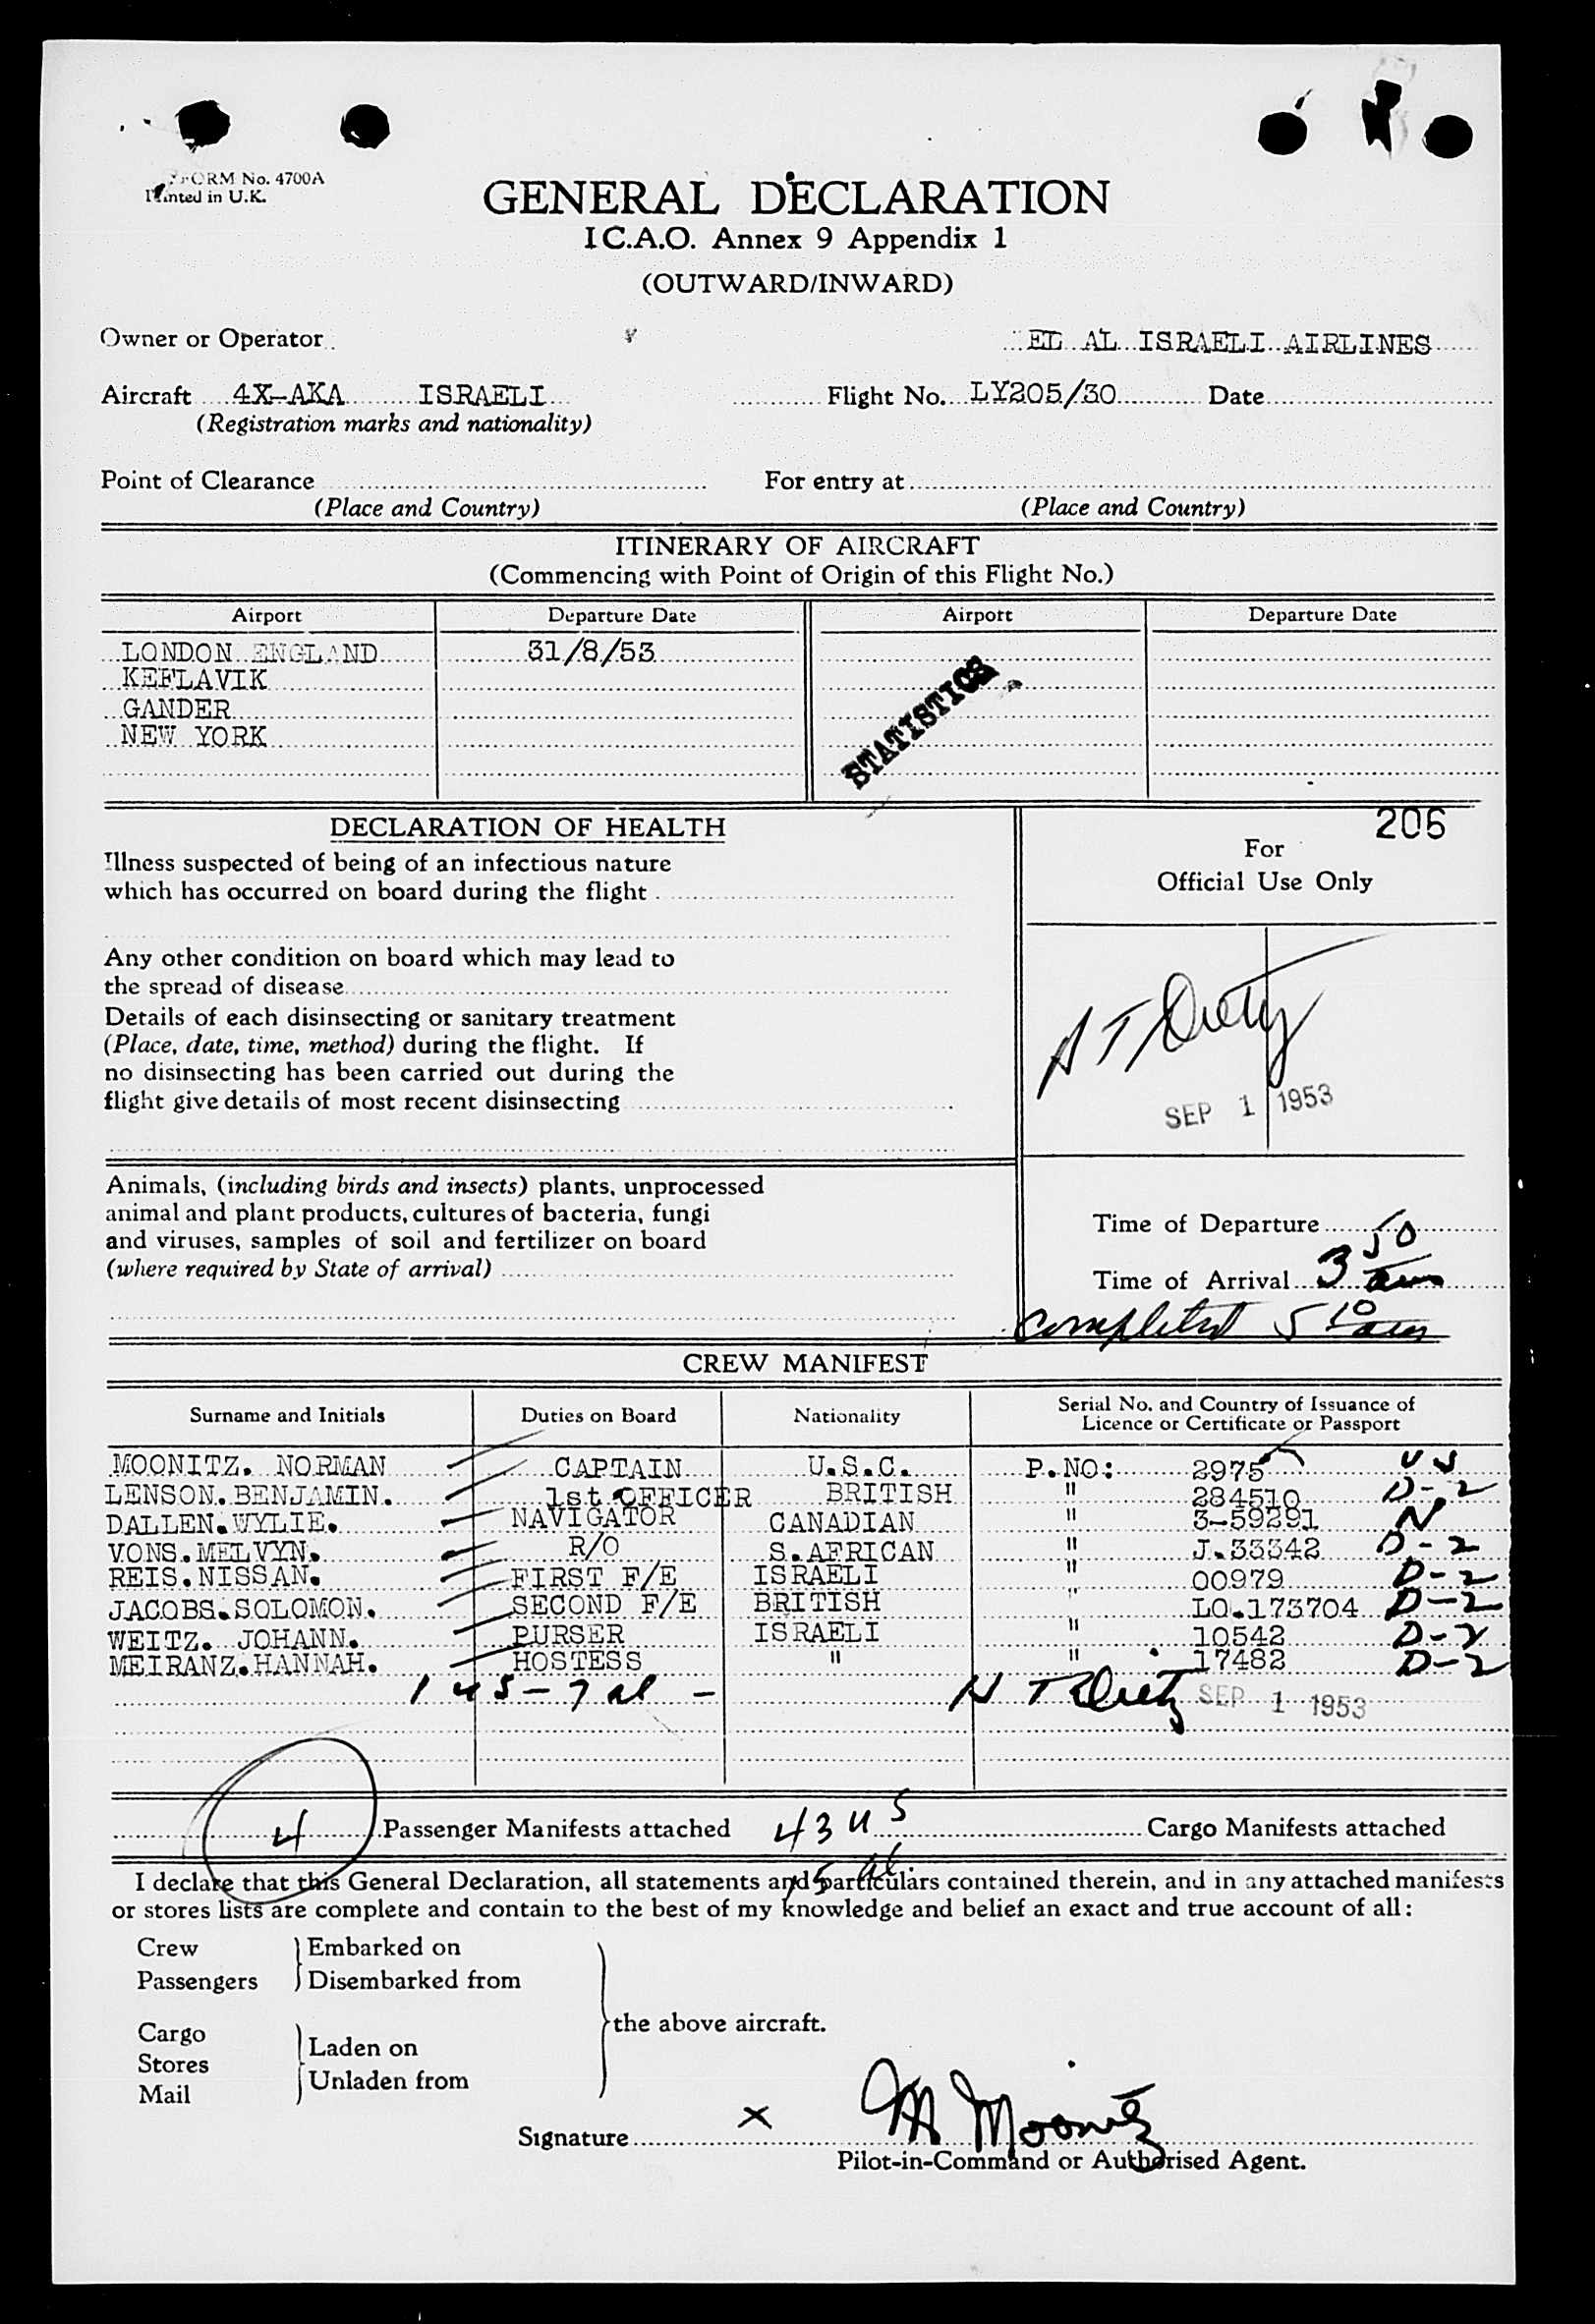 FORM No. 4700A
Printed in U.K.
GENERAL DECLARATION
I C.A.O. Annex 9 Appendix 1
(OUTWARD/INWARD)
Owner or Operator EL AL ISRAELI AIRLINES
Aircraft 4X-AKA ISRAELI Flight No. LY205/30 Date
(Registration marks and nationality)
Point of Clearance For entry at
(Place and Country) (Place and Country)
ITINERARY OF AIRCRAFT
(Commencing with Point of Origin of this Flight No.)
Airport Departure Date Airport Departure Date
LONDON ENGLAND 31/8/53
KEFLAVIK
GANDER
NEW YORK
STATISTICS
206
DECLARATION OF HEALTH
Illness suspected of being of an infectious nature
which has occurred on board during the flight
Any other condition on board which may lead to
the spread of disease
Details of each disinsecting or sanitary treatment
(Place, date, time, method) during the flight. If
no disinsecting has been carried out during the
flight give details of most recent disinsecting
For
Official Use Only
SEP 1 1953
Animals, (including birds and insects) plants, unprocessed
animal and plant products, cultures of bacteria, fungi
and viruses, samples of soil and fertilizer on board
(where required by State of arrival)
Time of Departure
Time of Arrival 3 50 am
Completed 5 10 am
CREW MANIFEST
Surname and Initials Duties on Board Nationality Serial No. and Country of Issuance of
Licence or Certificate or Passport
MOONITZ. NORMAN CAPTAIN U.S.C. P.NO: 2975 US
LENSON. BENJAMIN. 1st OFFICER BRITISH " 284510 D-2
DALLEN. WYLIE. NAVIGATOR CANADIAN " 3-59291 N
VONS. MELVYN. R/O S.AFRICAN " J.33342 D-2
REIS. NISSAN. FIRST F/E ISRAELI " 00979 D-2
JACOBS. SOLOMON. SECOND F/E BRITISH " LO.173704 D-2
WEITZ. JOHANN. PURSER ISRAELI " 10542 D-2
MEIRANZ. HANNAH. HOSTESS " " 17482 D-2
1 US - 7 al - SEP 1 1953
4 Passenger Manifests attached 43 US Cargo Manifests attached
I declare that this General Declaration, all statements and particulars contained therein, and in any attached manifests
or stores lists are complete and contain to the best of my knowledge and belief an exact and true account of all:
Crew Embarked on
Passengers Disembarked from
the above aircraft.
Cargo
Stores Laden on
Mail Unladen from
Signature x N Moonitz
Pilot-in-Command or Authorised Agent.